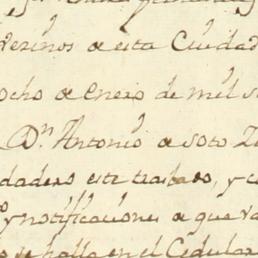 Vezinos de esta Ciudad
ocho de Enero de mil s
Dn Antonio de Soto
dadero este traslado, y c
y notificaciones a que va
se halla en el Cedular